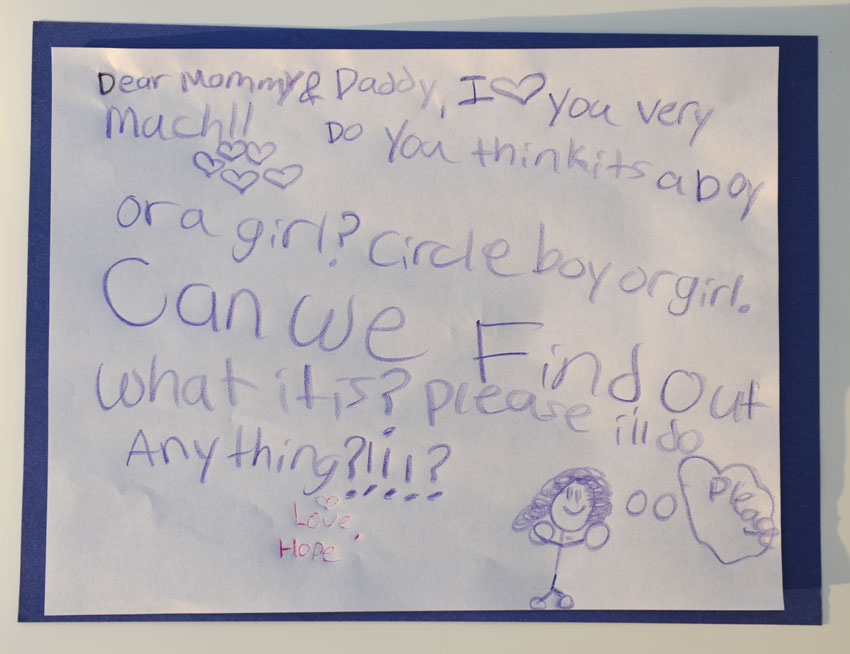 Dear Mommy & Daddy, I ♡ you very
Mach!! Do You think its a boy
or a girl? Circle boy or girl.
Can we Find Out
What it is? please i'll do
Anything?!!!?
Love,
Hope
Please